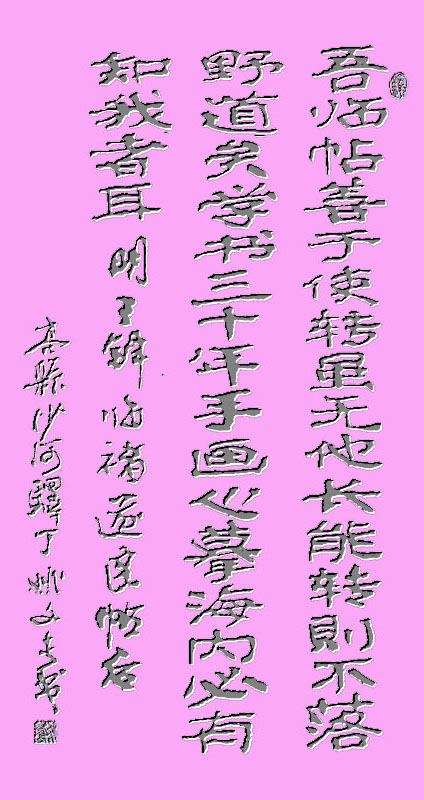 吾临帖善于使转虽无他长能转則不落
野道矣学书三十年手画心摹海内必有
知我者耳 明王铎临褚遂良帖后
高县沙河驿丁姚文